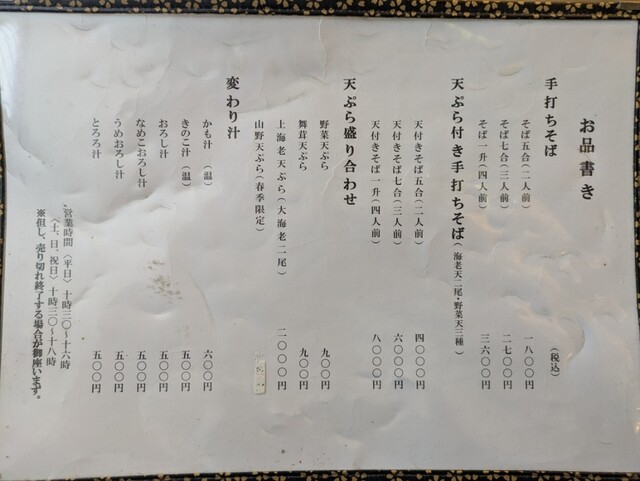 お品書き
(税込)
手打ちそば
そば五合(二人前) 一八〇〇円
そば七合(三人前) 二七〇〇円
そば一升(四人前) 三六〇〇円
天ぷら付き手打ちそば(海老天二尾・野菜天三種)
天付きそば五合(二人前) 四〇〇〇円
天付きそば七合(三人前) 六〇〇〇円
天付きそば一升(四人前) 八〇〇〇円
天ぷら盛り合わせ
野菜天ぷら 九〇〇円
舞茸天ぷら 九〇〇円
上海老天ぷら(大海老二尾) 二〇〇〇円
山野天ぷら(春季限定)
変わり汁
かも汁 (温) 六〇〇円
きのこ汁 (温) 五〇〇円
おろし汁 五〇〇円
なめこおろし汁 五〇〇円
うめおろし汁 五〇〇円
とろろ汁 五〇〇円
営業時間 〈平日〉 十時三〇〜十六時
〈土、日、祝日〉 十時三〇〜十八時
※但し、売り切れ終了する場合が御座います。